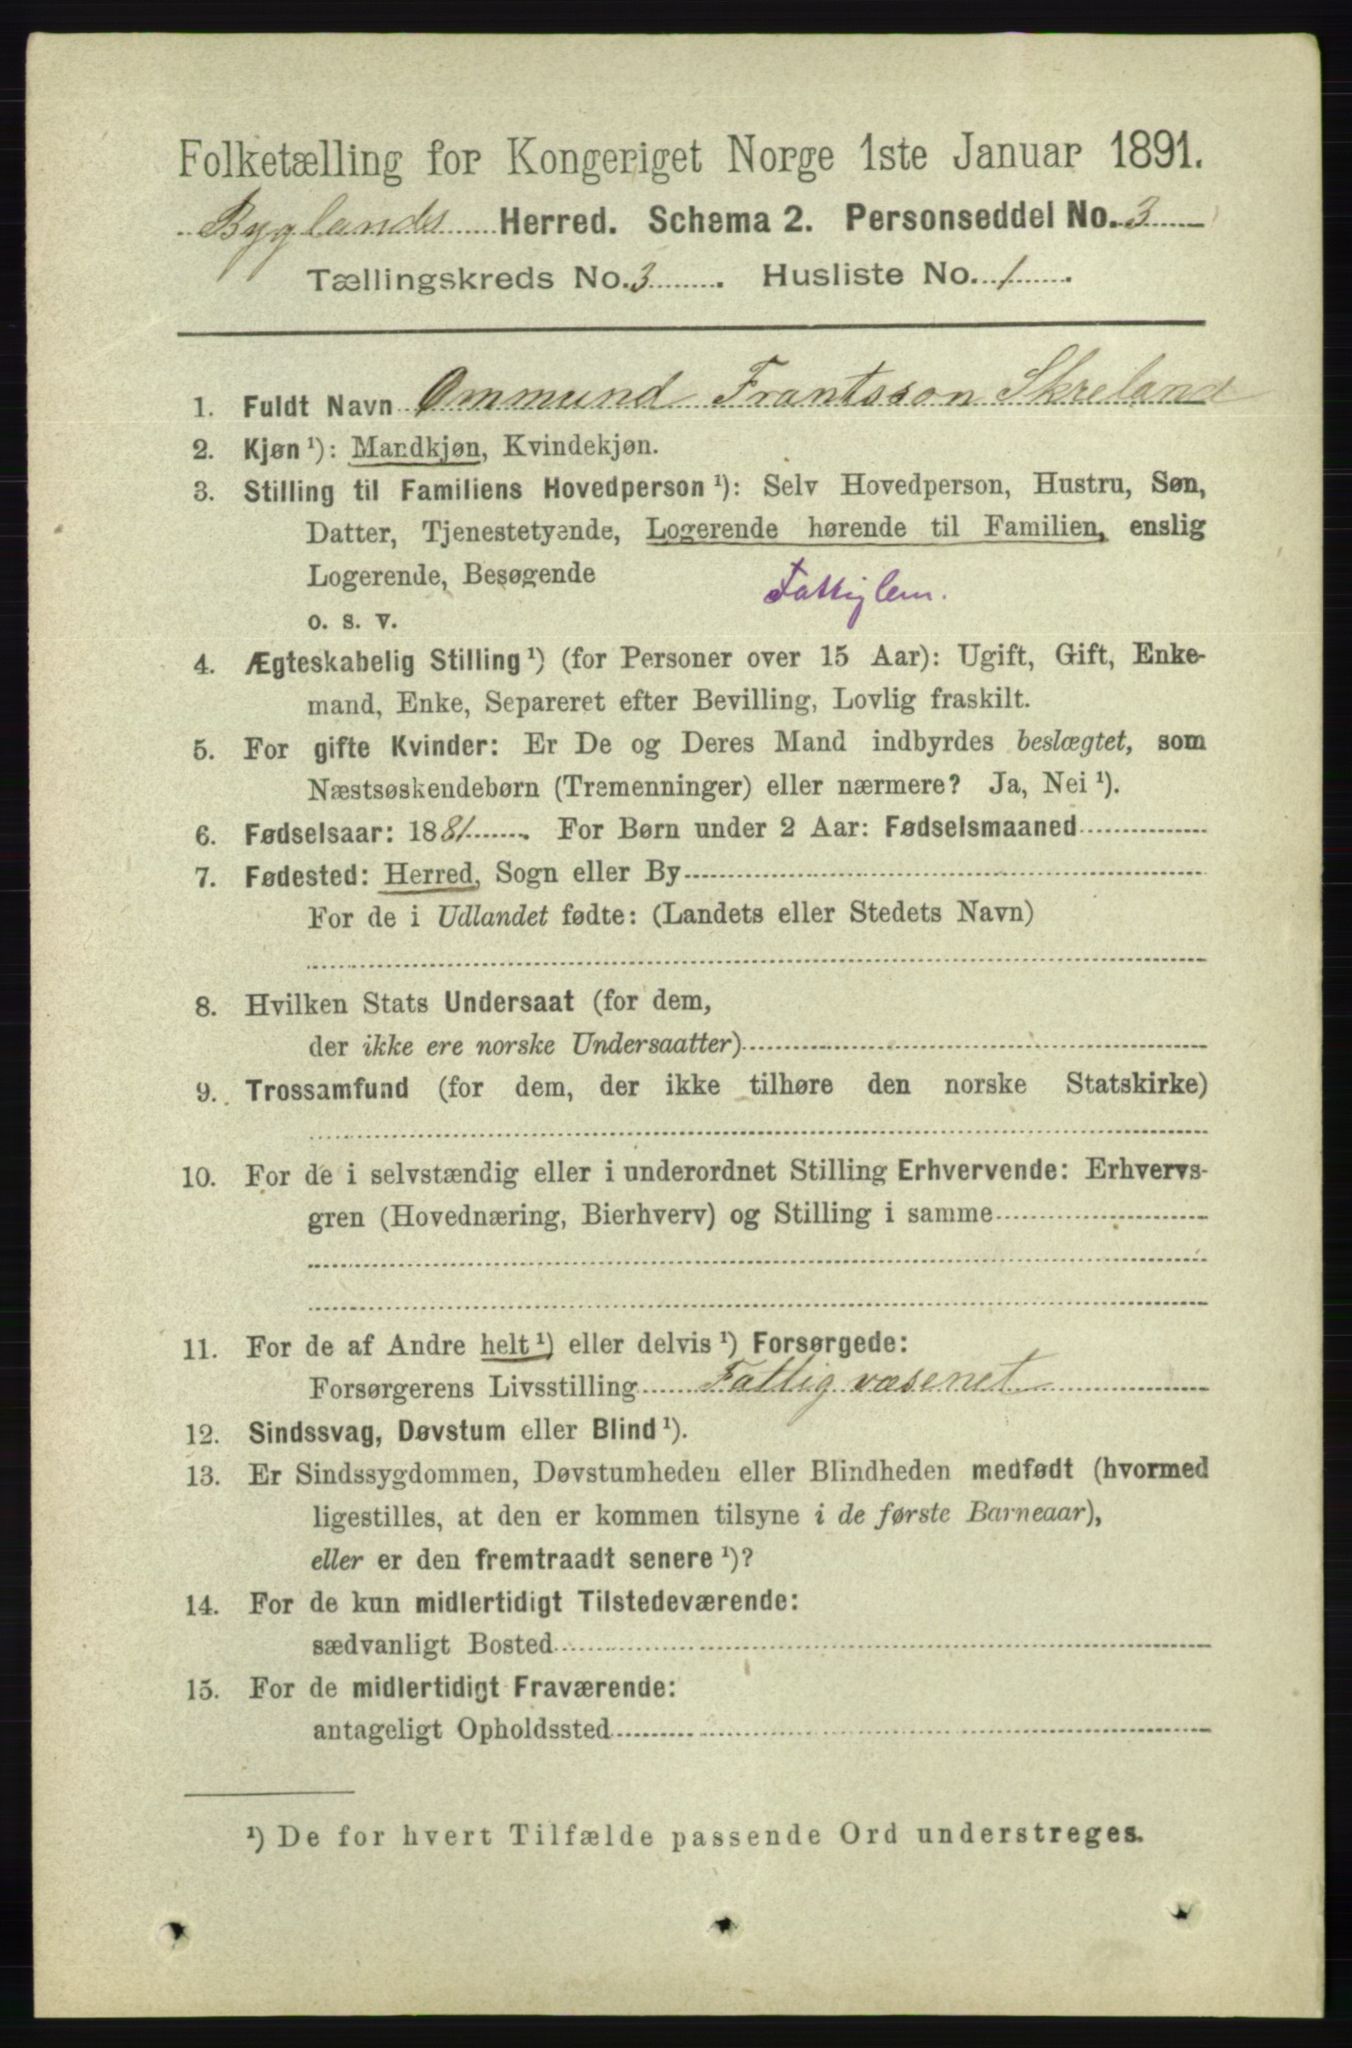 Folketælling for Kongeriget Norge 1ste Januar 1891.
Byglands Herred. Schema 2. Personseddel No. 3
Tællingskreds No. 3. Husliste No. 1.
1. Fuldt Navn Ommund Frantsson Skreland
2. Kjøn ¹): Mandkjøn, Kvindekjøn.
3. Stilling til Familiens Hovedperson ¹): Selv Hovedperson, Hustru, Søn,
Datter, Tjenestetyende, Logerende hørende til Familien, enslig
Logerende, Besøgende
Fattiglem.
o. s. v.
4. Ægteskabelig Stilling ¹) (for Personer over 15 Aar): Ugift, Gift, Enke-
mand, Enke, Separeret efter Bevilling, Lovlig fraskilt.
5. For gifte Kvinder: Er De og Deres Mand indbyrdes beslægtet, som
Næstsøskendebørn (Tremenninger) eller nærmere? Ja, Nei ¹).
6. Fødselsaar: 1881. For Børn under 2 Aar: Fødselsmaaned
7. Fødested: Herred, Sogn eller By
For de i Udlandet fødte: (Landets eller Stedets Navn)
8. Hvilken Stats Undersaat (for dem,
der ikke ere norske Undersaatter)
9. Trossamfund (for dem, der ikke tilhøre den norske Statskirke)
10. For de i selvstændig eller i underordnet Stilling Erhvervende: Erhvervs-
gren (Hovednæring, Bierhverv) og Stilling i samme
11. For de af Andre helt ¹) eller delvis ¹) Forsørgede:
Forsørgerens Livsstilling Fattigvæsenet
12. Sindssvag, Døvstum eller Blind ¹).
13. Er Sindssygdommen, Døvstumheden eller Blindheden medfødt (hvormed
ligestilles, at den er kommen tilsyne i de første Barneaar),
eller er den fremtraadt senere ¹)?
14. For de kun midlertidigt Tilstedeværende:
sædvanligt Bosted
15. For de midlertidigt Fraværende:
antageligt Opholdssted
¹) De for hvert Tilfælde passende Ord understreges.